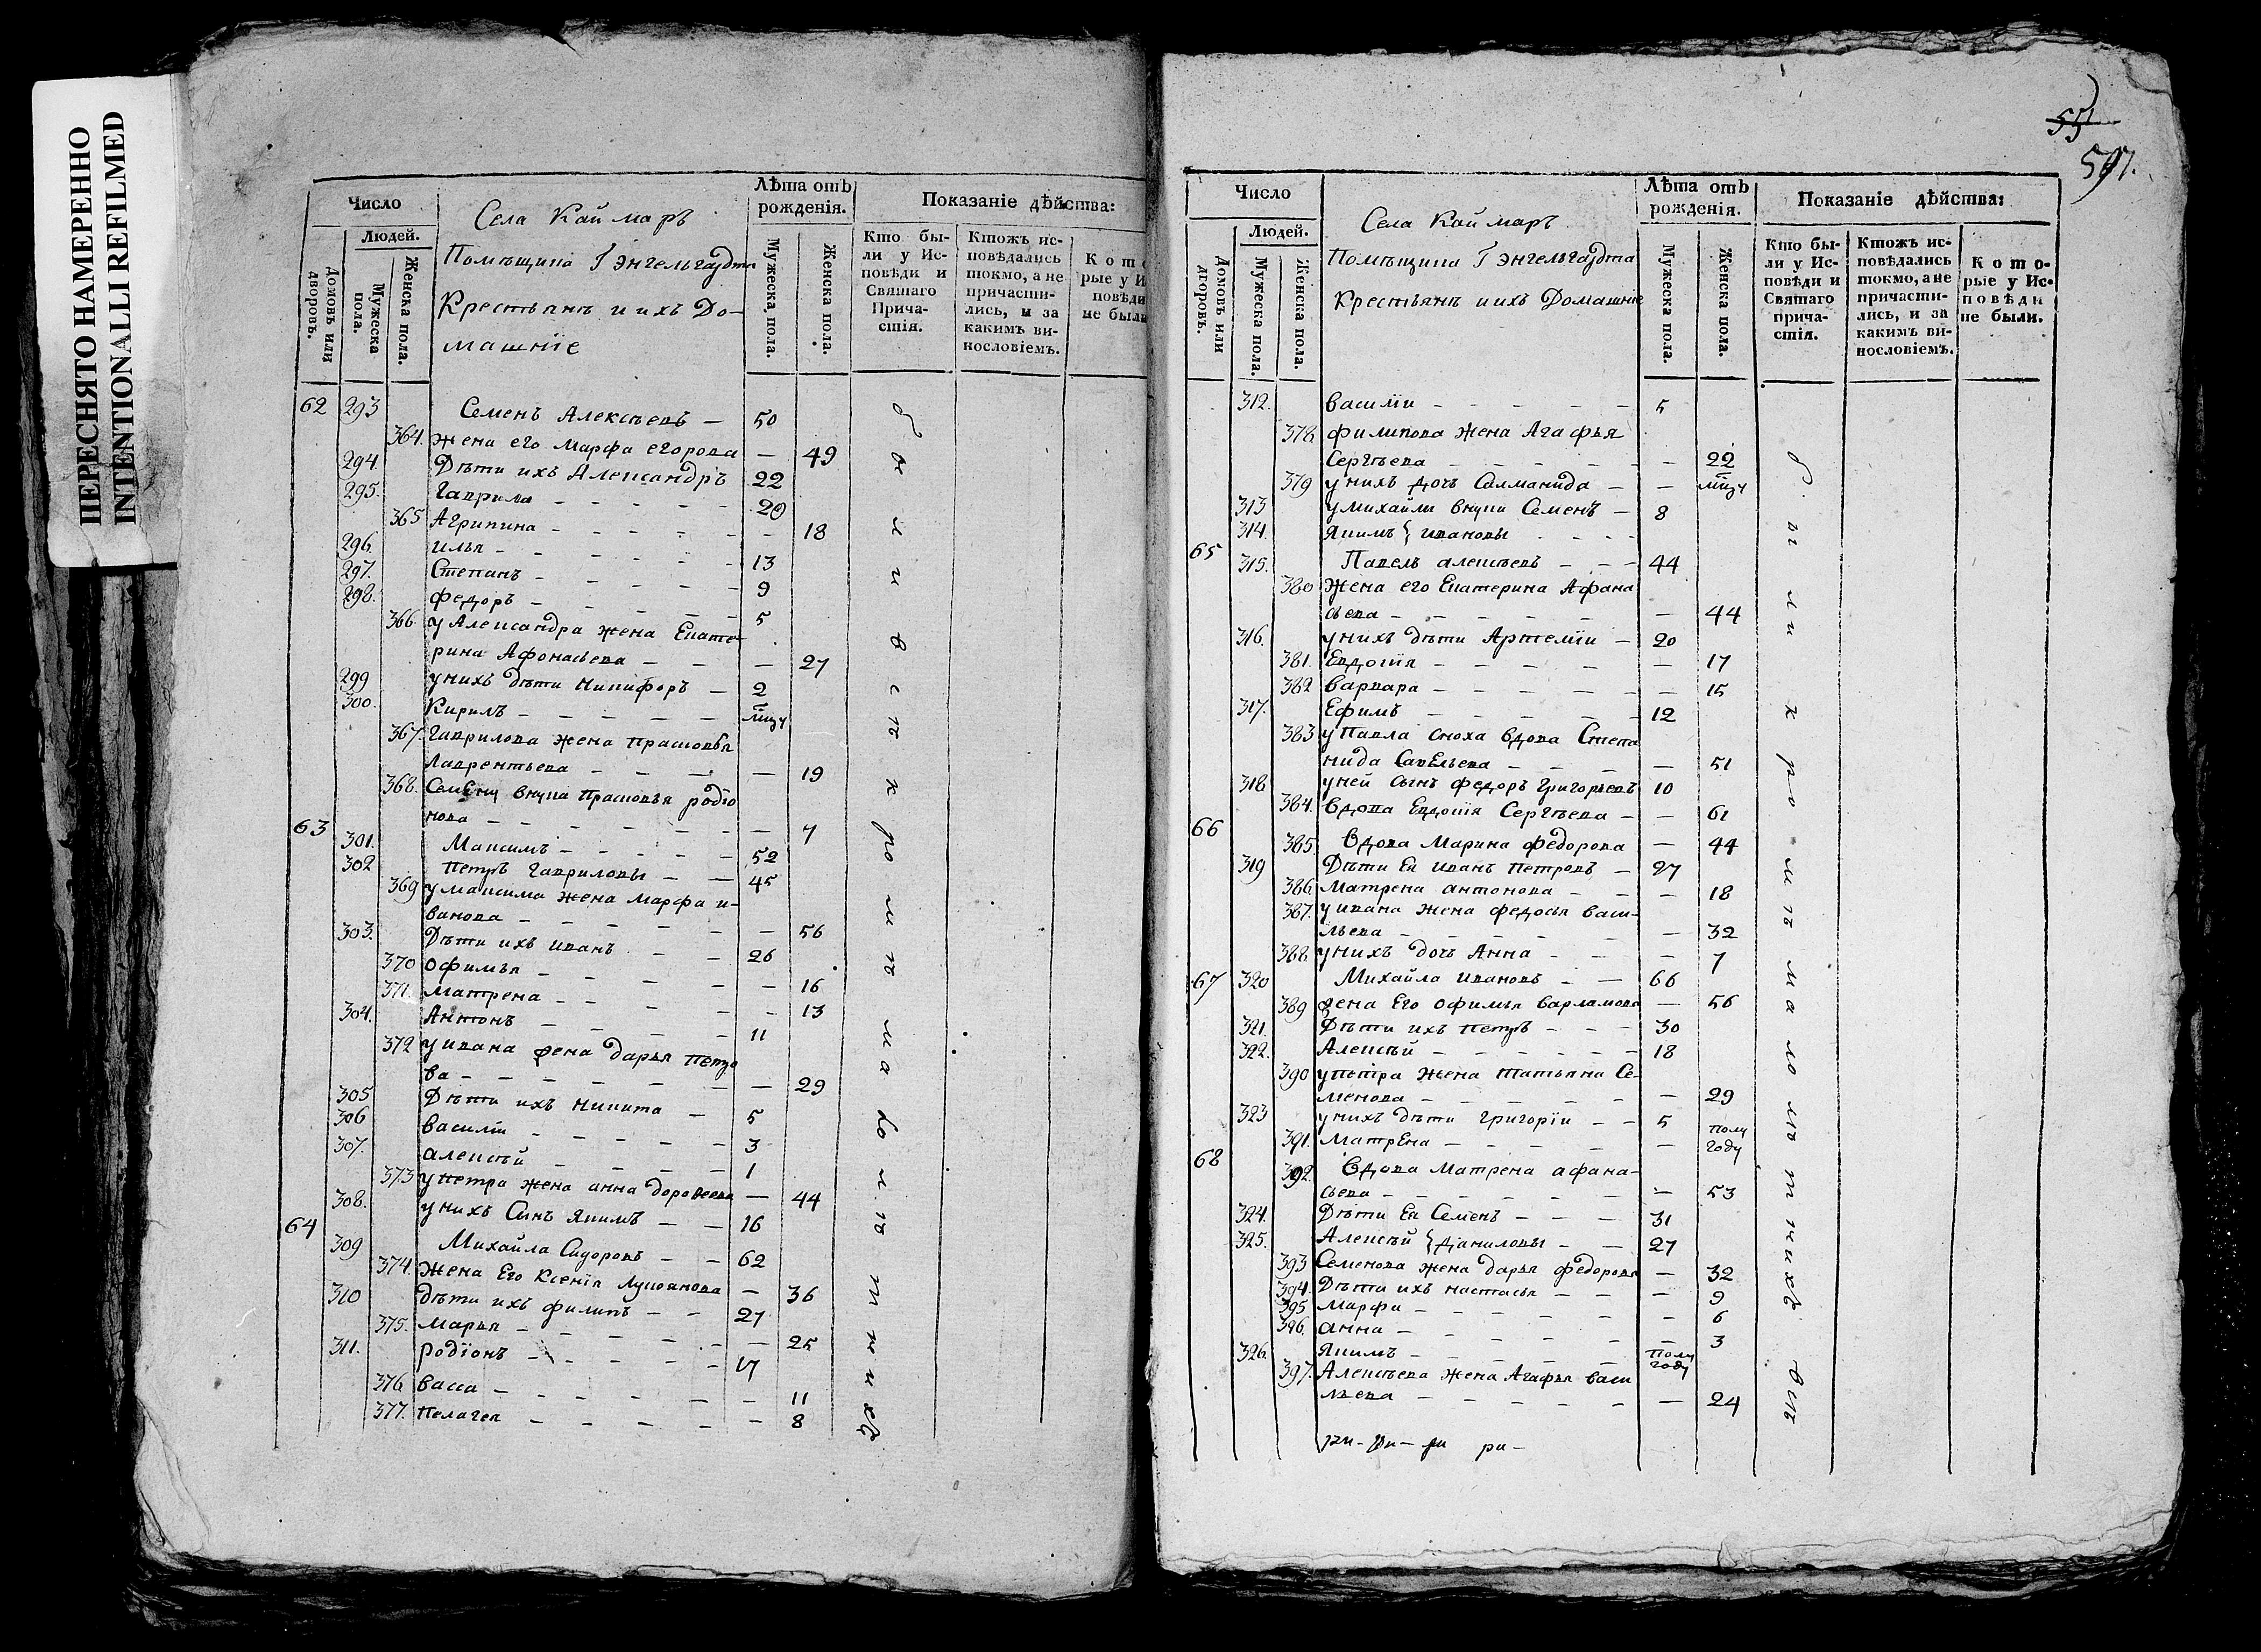 ПЕРЕСНЯТО НАМЕРЕННО
INTENTIONALLI REFILMED
Число
Людей.
Домовъ или дворовъ.
Мужеска пола.
Женска пола.
Села Каймаръ
Помѣщика Г Энгельгардта
Крестьянъ и ихъ До-
машніе
Лѣта отъ рожденія.
Мужеска пола.
Женска пола.
Показаніе дѣйства:
Кто бы-
ли у Ис-
повѣди и
Святаго
Прича-
стія.
Ктожъ ис-
повѣдались
токмо, а не
причасти-
лись, и за
какимъ ви-
нословіемъ.
Кото
рые у И
повѣди
не были
62 293 Семенъ Алексѣевъ — 50
364. жена его Марфа егорова — 49
294. Дѣти ихъ Александръ 22
295. Гаврила 20
365 Агрипина 18
296. илья 13
297. Степанъ 9
298. федоръ 5
366. у Александра жена Екате-
рина Афонасьева — 27
299 у нихъ дѣти Никифоръ — 2
300. Кирилъ мцзч
367. Гаврилова жена прасковья
Лаврентьева — 19
368. Семену внука Прасковья родіо
нова — 7
63 301. Максимъ 52
302 петръ Гавриловы 45
369 у максима жена Марфа и-
ванова — 56
303. Дѣти ихъ иванъ 26
370 офимья 16
371. матрена 13
304. Антонъ 11
372 у ивана жена дарья петро
ва — 29
305 Дѣти ихъ никита 5
306 василіи 3
307. алексѣй 1
373 у петра жена анна дорофеева — 44
308. у нихъ Сынъ якимъ 16
64 309 Михайла Сидоровъ 62
374. жена Его ксенія Лукоянова — 36
310 дѣти ихъ филипъ 27
375. марья 25
311. родіонъ 17
376 васса 11
377. пелагея 8
были в с ѣ к ро м ѣ ма ло л ѣ т н и хъ
55
597.
Число
Людей.
Домовъ или дворовъ.
Мужеска пола.
Женска пола.
Села Каймаръ
Помѣщика Г Энгельгардта
Крестьянъ и ихъ Домашніе
Лѣта отъ рожденія.
Мужеска пола.
Женска пола.
Показаніе дѣйства:
Кто бы-
ли у Ис-
повѣди и
Святаго
прича-
стія.
Ктожъ ис-
повѣдались
токмо, а не
причасти-
лись, и за
какимъ ви-
нословіемъ.
Кото-
рые у Ис-
повѣди
не были.
312. василіи 5
378. филипова жена Агафья
Сергѣева — 22
379 у нихъ дочь Саламанида — мцзч
313 у михайли внуки Семенъ — 8
314. якимъ } ивановы
65 315. Павелъ алексѣевъ 44
380 жена его Екатерина Афана
сьева — 44
316. у нихъ дѣти Артеміи 20
381. Евдокія 17
382 варвара 15
317. Ефимъ 12
383 у Павла сноха вдова Степа
нида Савельева — 51
318 у ней сынъ федоръ Григорьевъ 10
384. вдова Евдокія Сергѣева — 61
66 385. вдова Марина федорова — 44
319 Дѣти Ея иванъ петровъ 27
386. матрена антонова — 18
387. у ивана жена федосья васи-
льева — 32
388. у нихъ дочь Анна — 7
67 320 Михайла ивановъ 66
389 жена Его офимья варламова — 56
321. Дѣти ихъ петръ 30
322. Алексѣй 18
390 у петра жена татьяна Се-
менова — 29
323 у нихъ дѣти Григоріи 5
391. матрена — полу году
68 392. вдова матрена афана-
сьева — 53
324. Дѣти Ея Семенъ 31
325. Алексѣй } даниловы 27
393 Семенова жена дарья федорова — 32
394. Дѣти ихъ настасья 9
395 марфа 6
396. анна 3
326. якимъ полу году
397. Алексѣева жена Агафья васи
льева — 24
были к ро м ѣ ма ло л ѣ т н и хъ в с ѣ